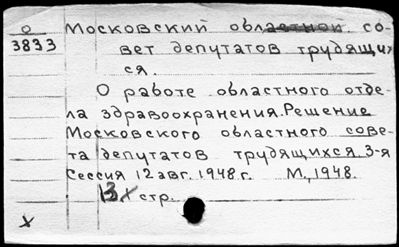 О
3833
Московский областной со-
вет депутатов трудящи
ся.
О работе областного отде-
ла здравоохранения. Решение
Московского областного сове-
та депутатов трудящихся. 3-я
Сессия 12 авг. 1948 г. М., 1948.
13 стр.
х